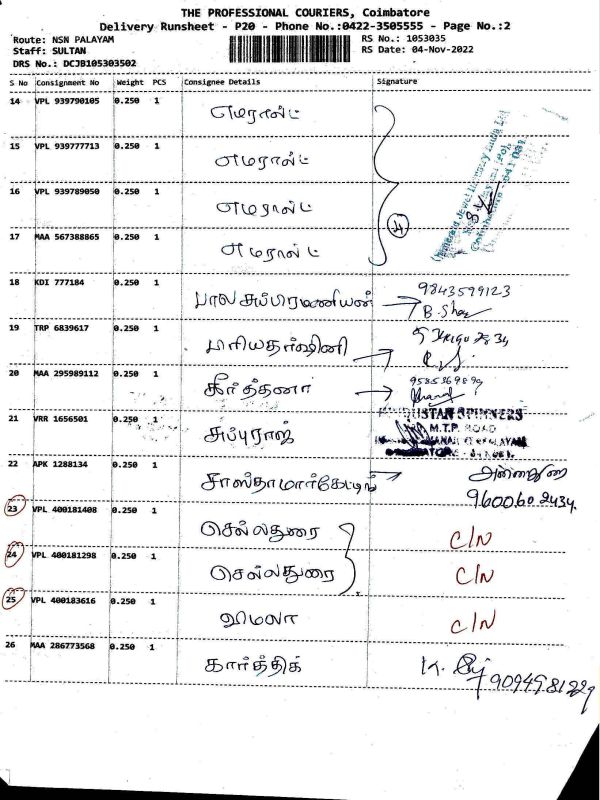 THE PROFESSIONAL COURIERS, Coimbatore
Delivery Runsheet - P20 - Phone No.:0422-3505555 - Page No.:2
Route: NSN PALAYAM RS No.: 1053035
Staff: SULTAN RS Date: 04-Nov-2022
DRS No.: DCJB105303502
S No Consignment No Weight PCS Consignee Details Signature
14 VPL 939790105 0.250 1 எமரால்ட்
15 VPL 939777713 0.250 1 எமரால்ட்
16 VPL 939789050 0.250 1 எமரால்ட்
17 MAA 567388865 0.250 1 எமரால்ட் 4
18 KDI 777184 0.250 1 பாலசுப்பிரமணியன் 9843599123
B. Sha
19 TRP 6839617 0.250 1 பிரியதர்ஷினி
20 MAA 295989112 0.250 1 கீர்த்தனா
21 VRR 1656501 0.250 1 சுப்புராஜ் HINDUSTAN SPINNERS
M.T.P. ROAD
22 APK 1288134 0.250 1 சாஸ்தாமார்கேட்டிங்
9600602434
23 VPL 400181408 0.250 1 செல்லதுரை C/N
24 VPL 400181298 0.250 1 செல்லதுரை C/N
25 VPL 400183616 0.250 1 விமலா C/N
26 MAA 286773568 0.250 1 கார்த்திக் K.